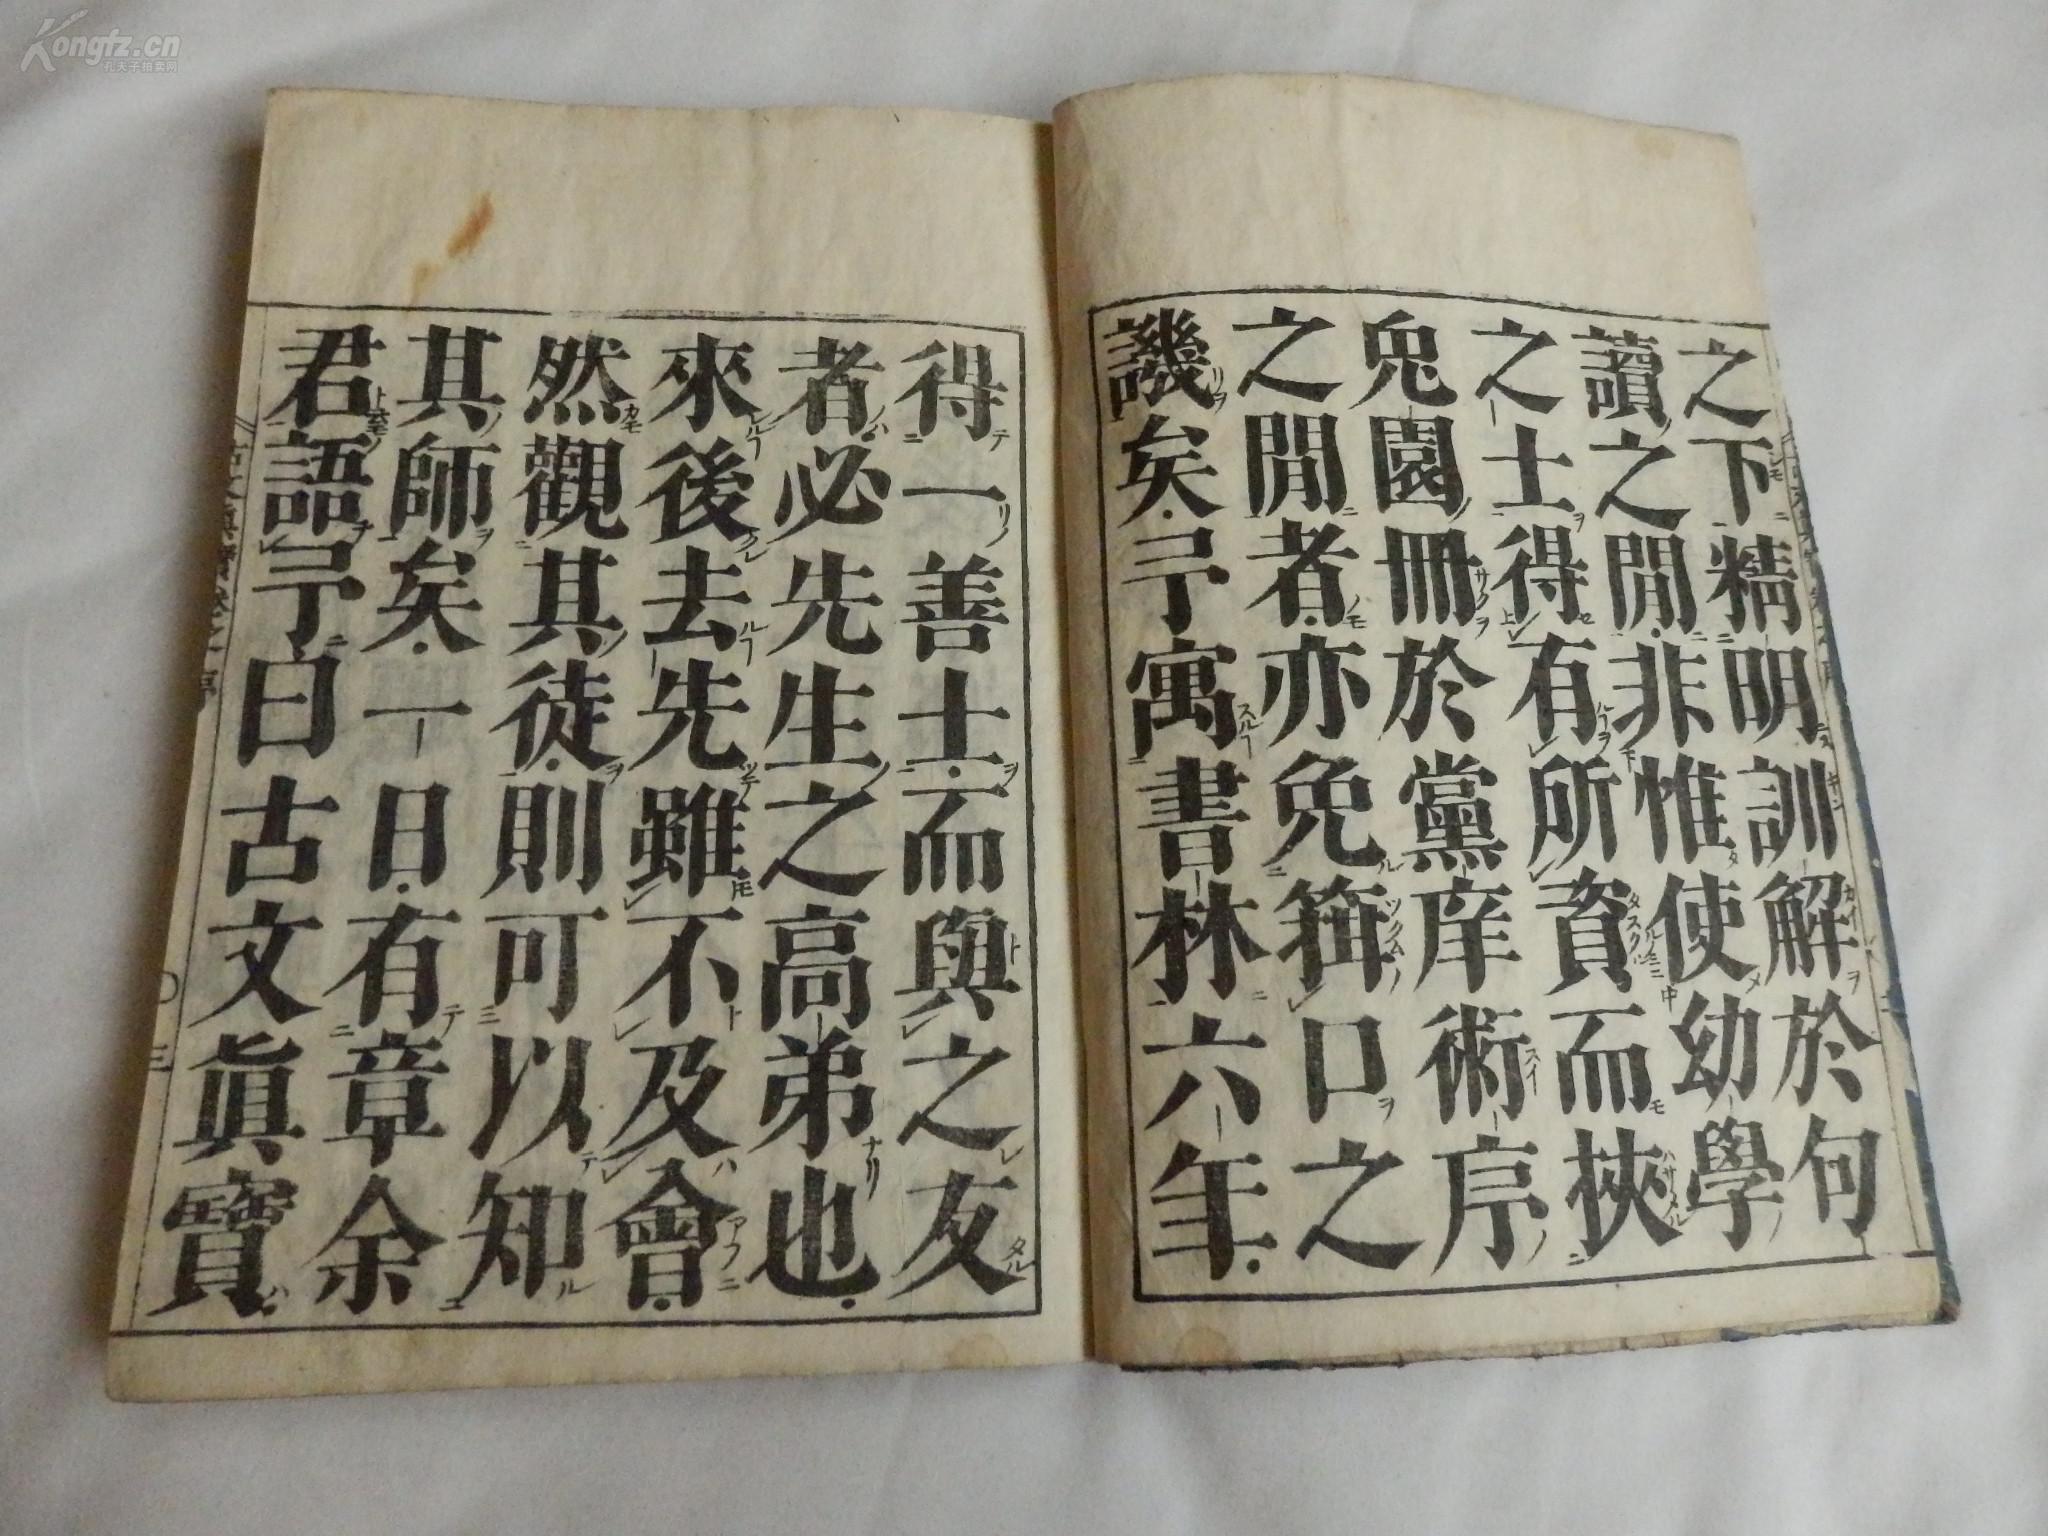 Kongfz.cn
孔夫子拍卖网
之下精明訓解於句
讀之閒非惟使幼學
之士得有所資而挾
兎園冊於黨庠術序
之閒者亦免箝口之
譏矣予寓書林六年
得一善士而與之友
者必先生之高弟也
來後去先雖不及會
然觀其徒則可以知
其師矣一日有章余
君語予曰古文眞寶